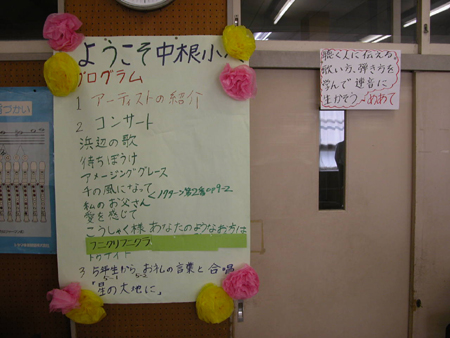 ようこそ中根小へ
プログラム
1 アーティストの紹介
2 コンサート
浜辺の歌
待ちぼうけ
アメージンググレース
千の風になって
私のお父さん
愛を感じて
こうしゃく様 あなたのようなお方は
フニクリフニクラ
トゥナイト
3 5年生から、お礼の言葉と合唱
「星の大地に」
聴く人に伝える
歌い方、弾き方を
学んで連音に
生かそう
めあて
づかい